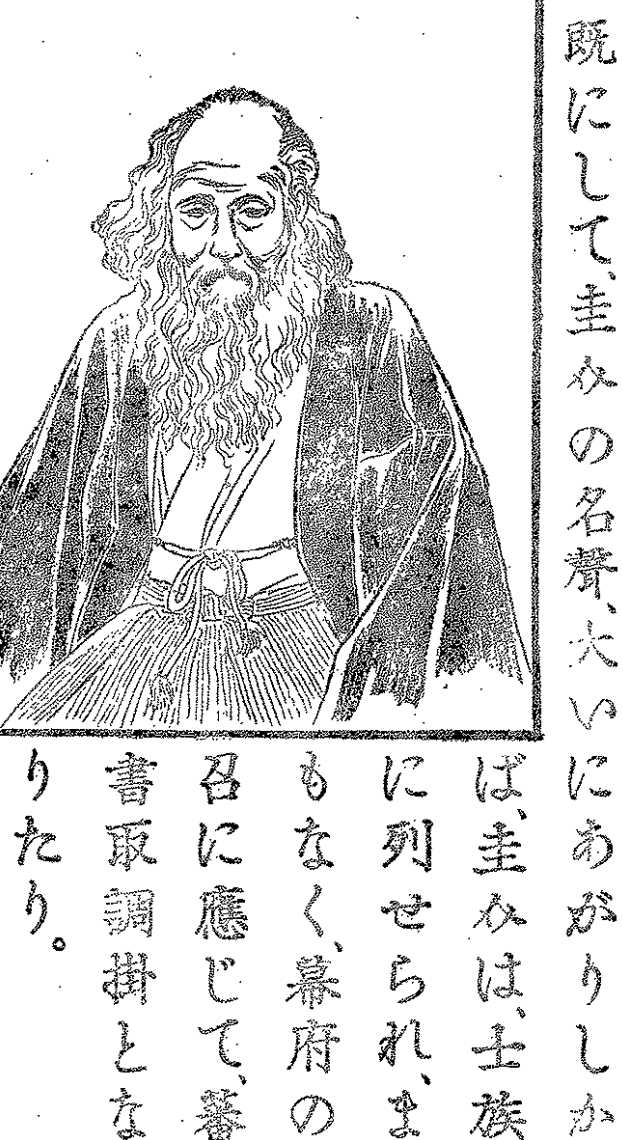 既にして、圭介の名聲、大いにあがりしか
ば、圭介は、士族
に列せられ、ま
もなく、幕府の
召に應じて、蕃
書取調掛とな
りたり。